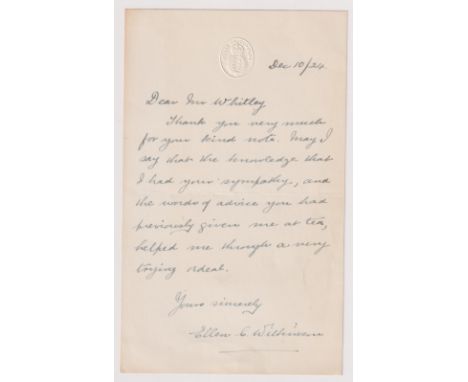 Dec 10/24
Dear Mr Whitley
Thank you very much
for your kind note. May I
say that the knowledge that
I had your sympathy, and
the words of advice you had
previously given me at tea,
helped me through a very
trying ordeal.
Yours sincerely
Ellen C. Wilkinson